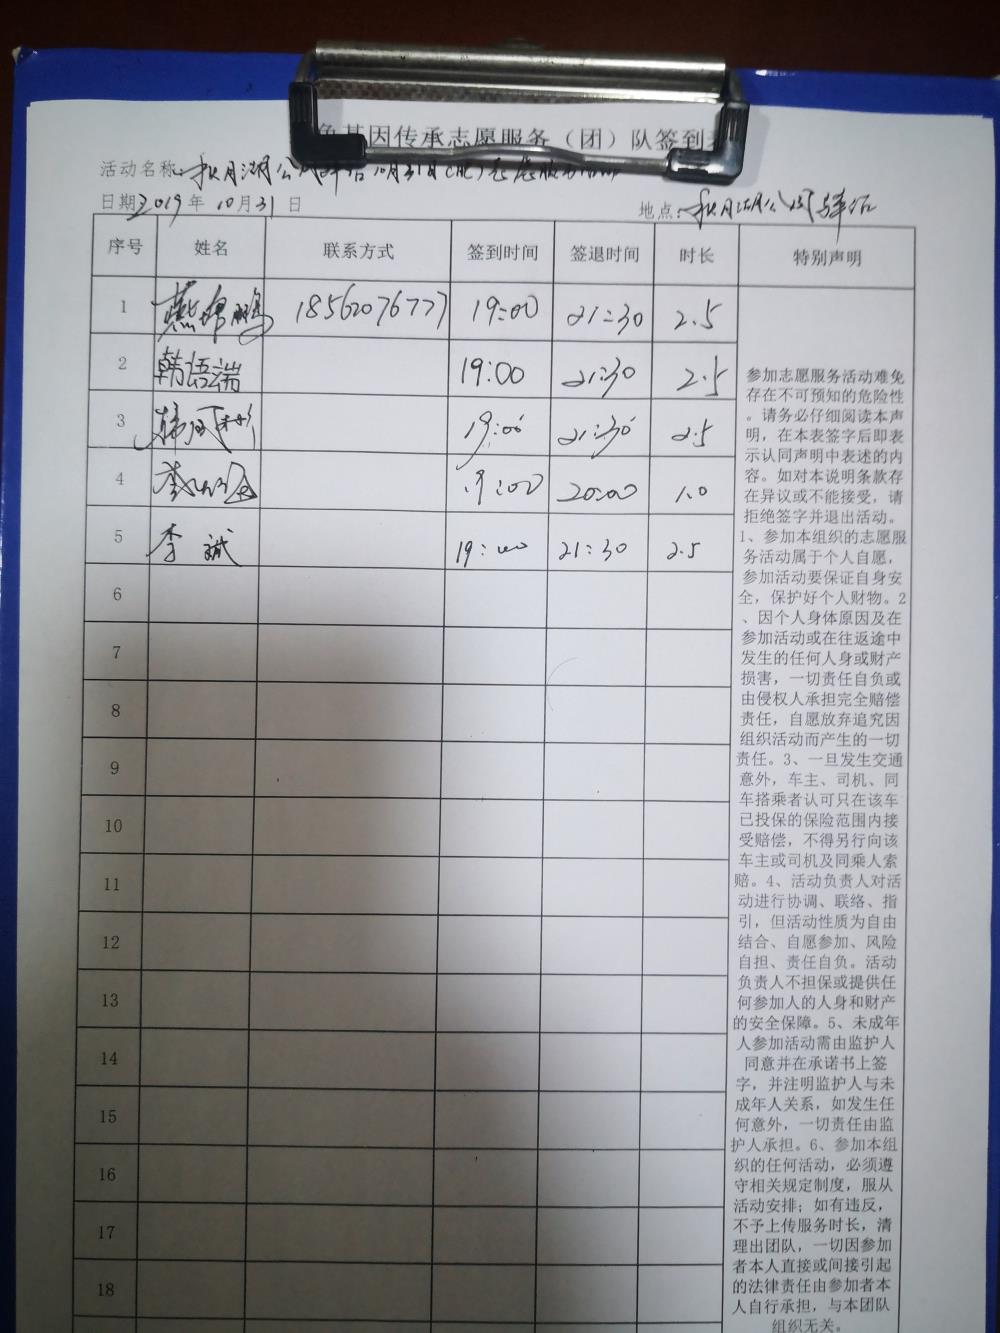 色基因传承志愿服务（团）队签到表
活动名称：秋月湖公园驿站10月31日
日期2019年10月31日 地点：秋月湖公园驿站
序号 姓名 联系方式 签到时间 签退时间 时长 特别声明
1 18562076777 19:00 21:30 2.5
2 韩语端 19:00 21:30 2.5
3 19:00 21:30 2.5
4 19:00 20:00 1.0
5 李斌 19:00 21:30 2.5
6
7
8
9
10
11
12
13
14
15
16
17
18
参加志愿服务活动难免
存在不可预知的危险性
。请务必仔细阅读本声
明，在本表签字后即表
示认同声明中表述的内
容。如对本说明条款存
在异议或不能接受，请
拒绝签字并退出活动。
1、参加本组织的志愿服
务活动属于个人自愿，
参加活动要保证自身安
全，保护好个人财物。2
、因个人身体原因及在
参加活动或在往返途中
发生的任何人身或财产
损害，一切责任自负或
由侵权人承担完全赔偿
责任，自愿放弃追究因
组织活动而产生的一切
责任。3、一旦发生交通
意外，车主、司机、同
车搭乘者认可只在该车
已投保的保险范围内接
受赔偿，不得另行向该
车主或司机及同乘人索
赔。4、活动负责人对活
动进行协调、联络、指
引，但活动性质为自由
结合、自愿参加、风险
自担、责任自负。活动
负责人不担保或提供任
何参加人的人身和财产
的安全保障。5、未成年
人参加活动需由监护人
同意并在承诺书上签
字，并注明监护人与未
成年人关系，如发生任
何意外，一切责任由监
护人承担。6、参加本组
织的任何活动，必须遵
守相关规定制度，服从
活动安排；如有违反，
不予上传服务时长，清
理出团队，一切因参加
者本人直接或间接引起
的法律责任由参加者本
人自行承担，与本团队
组织无关。